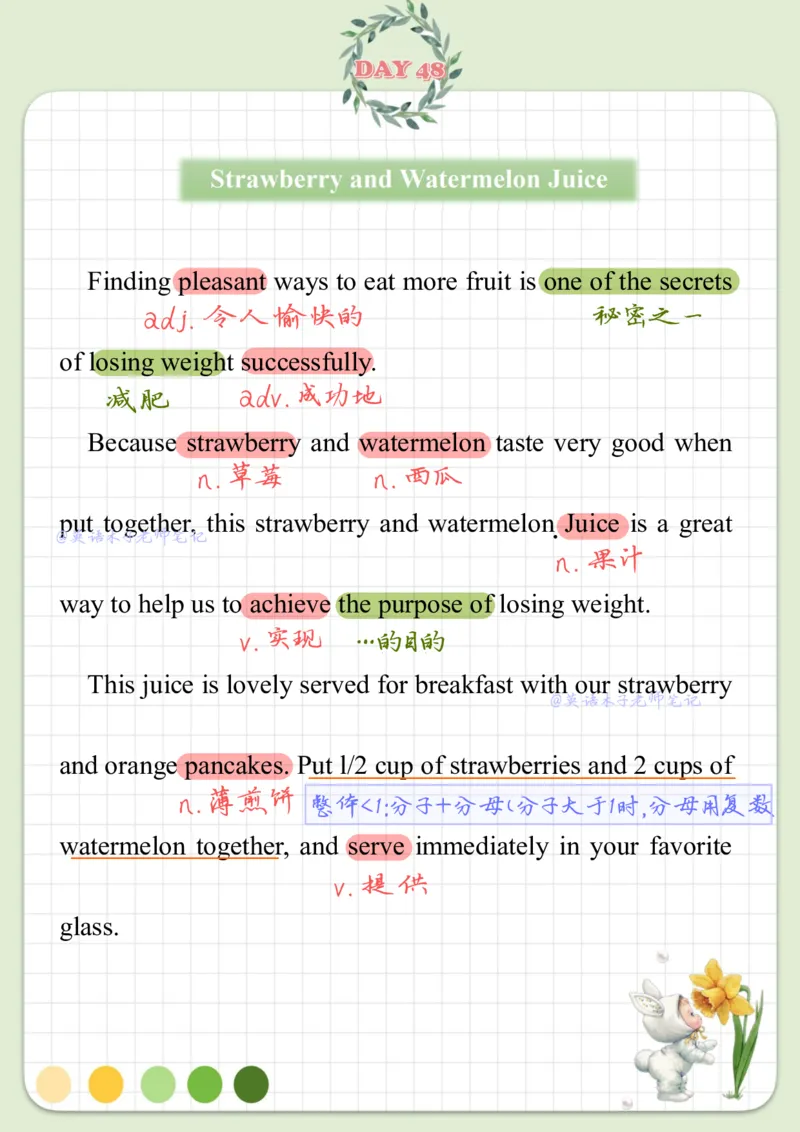 DAY 48
Strawberry and Watermelon Juice
Finding pleasant ways to eat more fruit is one of the secrets
adj. 令人愉快的 秘密之一
of losing weight successfully.
减肥 adv. 成功地
Because strawberry and watermelon taste very good when
n. 草莓 n. 西瓜
put together, this strawberry and watermelon Juice is a great
@英语木子老师笔记
n. 果汁
way to help us to achieve the purpose of losing weight.
v. 实现 …的目的
This juice is lovely served for breakfast with our strawberry
@英语木子老师笔记
and orange pancakes. Put 1/2 cup of strawberries and 2 cups of
n. 薄煎饼 整体<1:分子+分母(分子大于1时,分母用复数
watermelon together, and serve immediately in your favorite
v. 提供
glass.